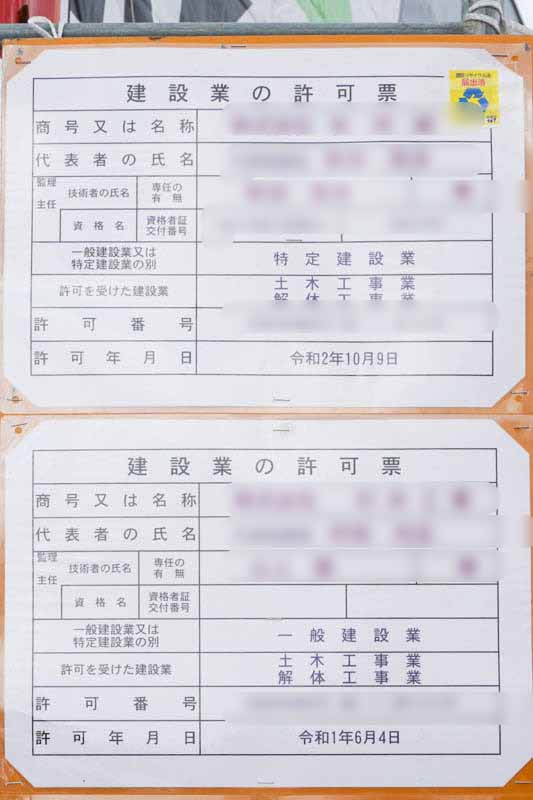 建設業の許可票
届出済
商号又は名称
代表者の氏名
監理
主任
技術者の氏名
専任の
有無
資格名
資格者証
交付番号
一般建設業又は
特定建設業の別
特定建設業
許可を受けた建設業
土木工事業
解体工事業
許可番号
許可年月日
令和2年10月9日
建設業の許可票
商号又は名称
代表者の氏名
監理
主任
技術者の氏名
専任の
有無
資格名
資格者証
交付番号
一般建設業又は
特定建設業の別
一般建設業
許可を受けた建設業
土木工事業
解体工事業
許可番号
許可年月日
令和1年6月4日